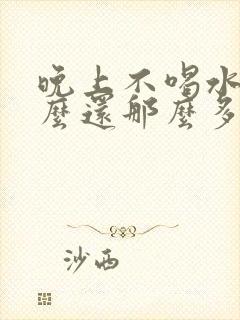 晚上不喝水
麼還那麼多
沙西